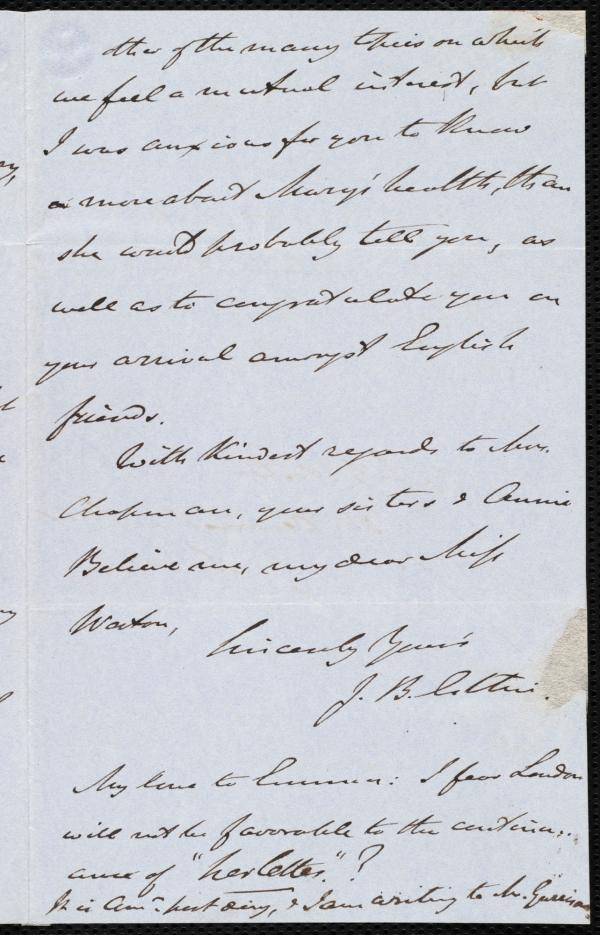 other of the many topics on which
we feel a mutual interest, but
I was anxious for you to know
more about Mary's health, than
she would probably tell you, as
well as to congratulate you on
your arrival amongst English
friends.
With kindest regards to Mrs.
Chapman, your sisters & Annie
Believe me, my dear Miss
Weston,
Sincerely Yours
J. B. Estlin.
My love to Emma: I fear London
will not be favorable to the continu-
ance of "her letter."?
It is Amn. post day, & I am writing to Mr. Garrison